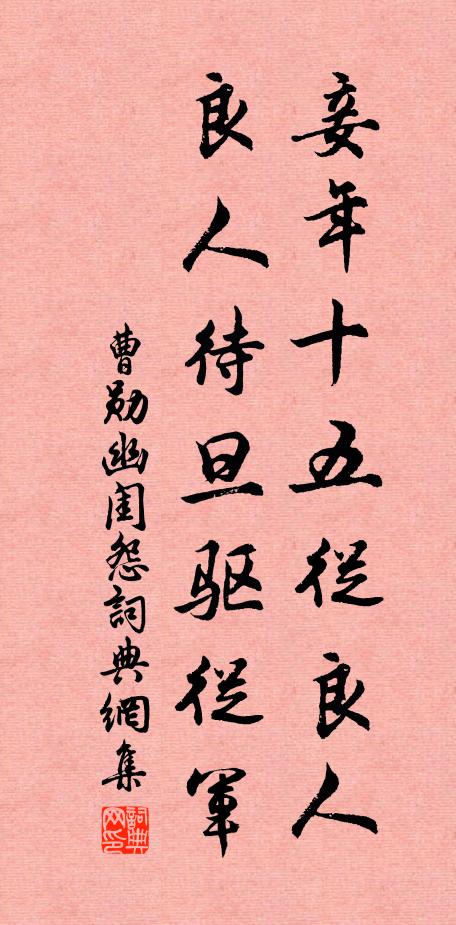 妾年十五從良人
良人待旦驱從軍
曹勛幽閨怨詞典網集
詞典网印